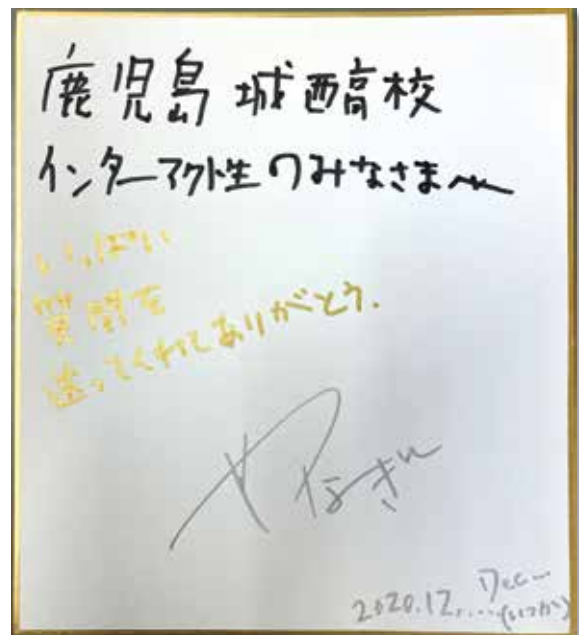 鹿児島 城西高校
インターアクト生のみなさまへ
いっぱい
質問を
送ってくれてありがとう.
やなぎ
Dec...
2020.12.....(いつか)